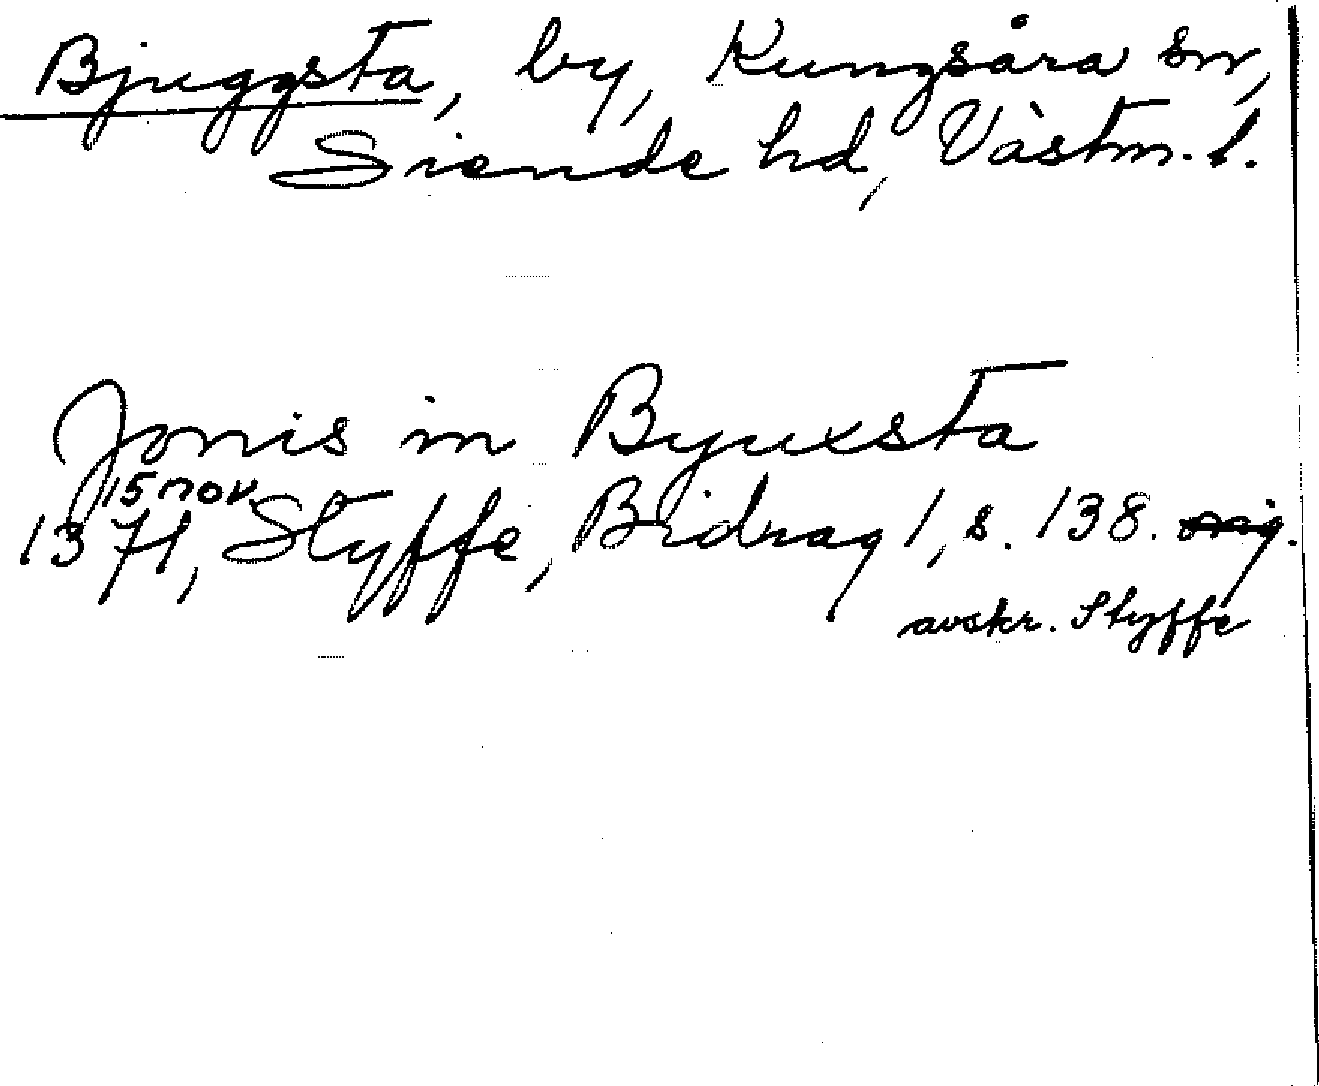 Bjuggsta, by, Kungsåra sn,
Siende hd, Västm. l.
Jonis in Byuxsta
15 nov
1371, Styffe, Bidrag 1, s. 138. orig.
avskr. Styffe